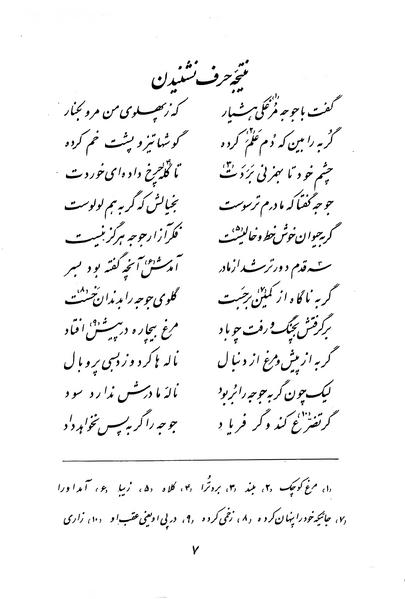 نتیجهٔ حرف نشنیدن
گفت با جوجه مرغکی (۱) هشیار که ز پهلوی من مرو بکنار
گربه را بین که دُم عَلَم (۲) کرده گوشها تیز و پشت خم کرده
چشم خود تا بهم زنی بَرَدَت (۳) تا کُلَه (۴) چرخ داده‌ای خوردت
جوجه گفتا که مادرم ترسوست بخیالش که گربه هم لولوست
گربه حیوان خوش خط و خالیست (۵) فکر آزار جوجه هرگز نیست
سه قدم دورتر شد از مادر آمدش (۶) آنچه گفته بود بسر
گربه ناگاه از کمین (۷) برجست گلوی جوجه را بدندان خست (۸)
برگرفتش بچنگ و رفت چو باد مرغ بیچاره در پیش (۹) افتاد
گربه از پیش و مرغ از دنبال ناله ها کرد و زد بسی پر و بال
لیک چون گربه جوجه را بربود نالهٔ مادرش ندارد سود
گر تضرّع (۱۰) کند و گر فریاد جوجه را گربه پس نخواهد داد
۱، مرغ کوچک ۲، بلند ۳، برد ترا ۴، کلاه ۵، زیبا ۶، آمد او را
۷، جائیکه خود را پنهان کرده ۸، زخمی کرده ۹، در پی او یعنی عقب او ۱۰، زاری
۷